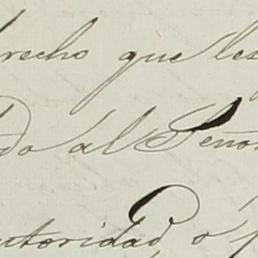 derecho que les
do al Señor
autoridad, o p